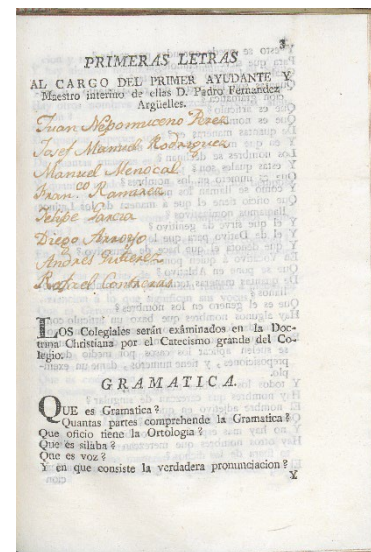 3
PRIMERAS LETRAS
AL CARGO DEL PRIMER AYUDANTE Y
Maestro interino de ellas D. Pedro Fernandez
Argüelles.
Juan Nepomuceno Perez
Josef Manuel Rodriguez
Manuel Menocal
Fran.co Ramirez
Felipe Garcia
Diego Arroyo
Andres Gutierez
Rafael Contreras
LOS Colegiales serán exâminados en la Doc-
trina Christiana por el Catecismo grande del Co-
legio.
GRAMATICA.
QUE es Gramatica?
Quantas partes comprehende la Gramatica?
Que oficio tiene la Ortologia?
Que es silaba?
Que es voz?
Y en que consiste la verdadera pronunciacion?
Y